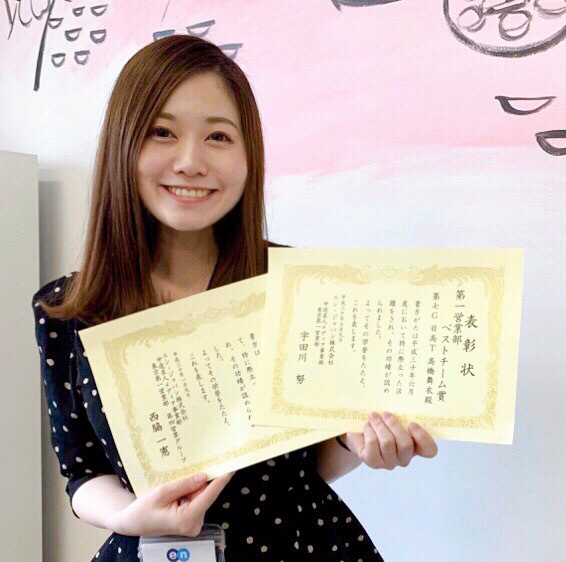 表彰状
第一営業部
ベストチーム賞
第七G 目高T 高橋舞衣殿
貴方がたは平成三十年六月
度において特に際立った活
躍をされ、その功績が認め
られました。
よってその栄誉をたたえ、
これを表します。
平成三十年七月九日
エン・ジャパン株式会社
中途求人メディア事業部
東京第一営業部
宇田川 努
貴方は
て、特に際立
れ、その功績が認められ
した。
よってその栄誉をたたえ、
これを表します。
エン・ジャパン株式会社
中途求人メディア事業部
東京第一営業部 第四営業グループ
西脇 一憲
en